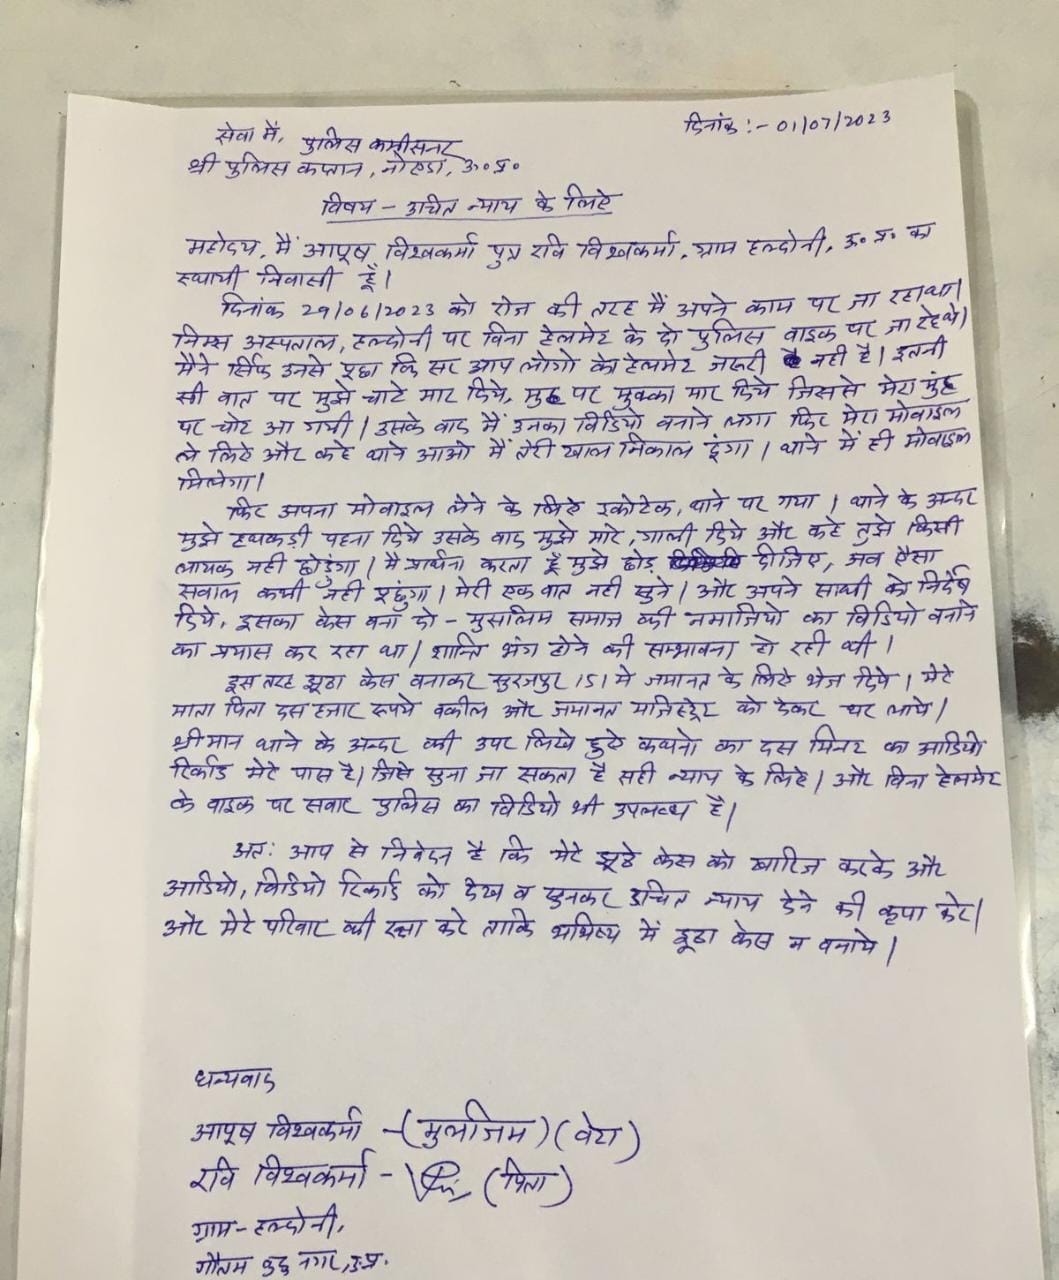 दिनांक :- 01/07/2023
सेवा में, पुलिस कमीसनर
श्री पुलिस कप्तान, नोएडा, उ०प्र०
विषय - उचित न्याय के लिए
महोदय, मैं आयुष विश्वकर्मा पुत्र रवि विश्वकर्मा, ग्राम हल्दोनी, उ०प्र० का
स्थायी निवासी हूँ।
दिनांक 29/06/2023 को रोज की तरह मैं अपने काम पर जा रहा था।
निम्स अस्पताल, हल्दोनी पर बिना हेलमेट के दो पुलिस बाइक पर जा रहे थे।
मैंने सिर्फ उनसे पूछा कि सर आप लोगो को हेलमेट जरूरी नही है। इतनी
सी बात पर मुझे चाटे मार दिये, मुह पर मुक्का मार दिये जिससे मेरा मुंह
पर चोट आ गयी। उसके बाद मैं उनका विडियो बनाने लगा फिर मेरा मोबाइल
ले लिए और कहे थाने आओ मैं तेरी खाल निकाल दूंगा। थाने में ही मोबाइल
मिलेगा।
फिर अपना मोबाइल लेने के लिए इकोटेक, थाने पर गया। थाने के अन्दर
मुझे हथकड़ी पहना दिये उसके बाद मुझे मारे, गाली दिये और कहे तुझे किसी
लायक नही छोडुंगा। मै प्रार्थना करता हूँ मुझे छोड़ दीजिए, अब ऐसा
सवाल कभी नही पूछुंगा। मेरी एक बात नही सुने। और अपने साथी को निर्देष
दिये, इसका केस बना दो - मुसलिम समाज की नमाजियो का विडियो बनाने
का प्रयास कर रहा था। शान्ति भंग होने की सम्भावना हो रही थी।
इस तरह झूठा केस बनाकर सुरजपुर 151 मे जमानत के लिए भेज दिये। मेरे
माता पिता दस हजार रूपये वकील और जमानत मजिस्ट्रेट को देकर घर लाये।
श्रीमान थाने के अन्दर की उपर लिखे हुऐ कथनो का दस मिनट का आडियो
रिकार्ड मेरे पास है। जिसे सुना जा सकता है सही न्याय के लिए। और बिना हेलमेट
के बाइक पर सवार पुलिस का विडियो भी उपलब्ध है।
अतः आप से निवेदन है कि मेरे झूठे केस को खारिज करके और
आडियो, विडियो रिकार्ड को देख व सुनकर उचित न्याय देने की कृपा करे।
और मेरे परिवार की रक्षा करे ताकि भविष्य में झूठा केस न बनाये।
धन्यवाद
आयुष विश्वकर्मा - (मुलजिम) (बेटा)
रवि विश्वकर्मा - (पिता)
ग्राम - हल्दोनी,
गौतम बुद्ध नगर, उ.प्र.